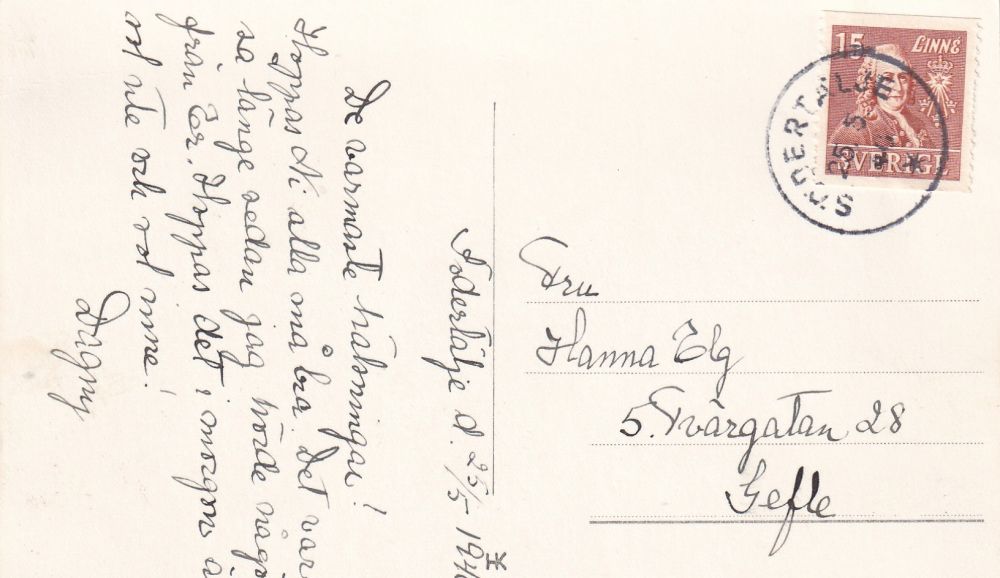 Södertälje d. 25/5 194
De varmaste hälsningar!
Hoppas Ni alla må bra. Det var
så länge sedan jag hörde någo
från Er. Hoppas det i morgon ä
sol ute och sol inne!
Dagny
15 LINNÉ
SVERIGE
SÖDERTÄLJE
25. 5
Fru
Hanna Elg
5. Tvärgatan 28
Gefle